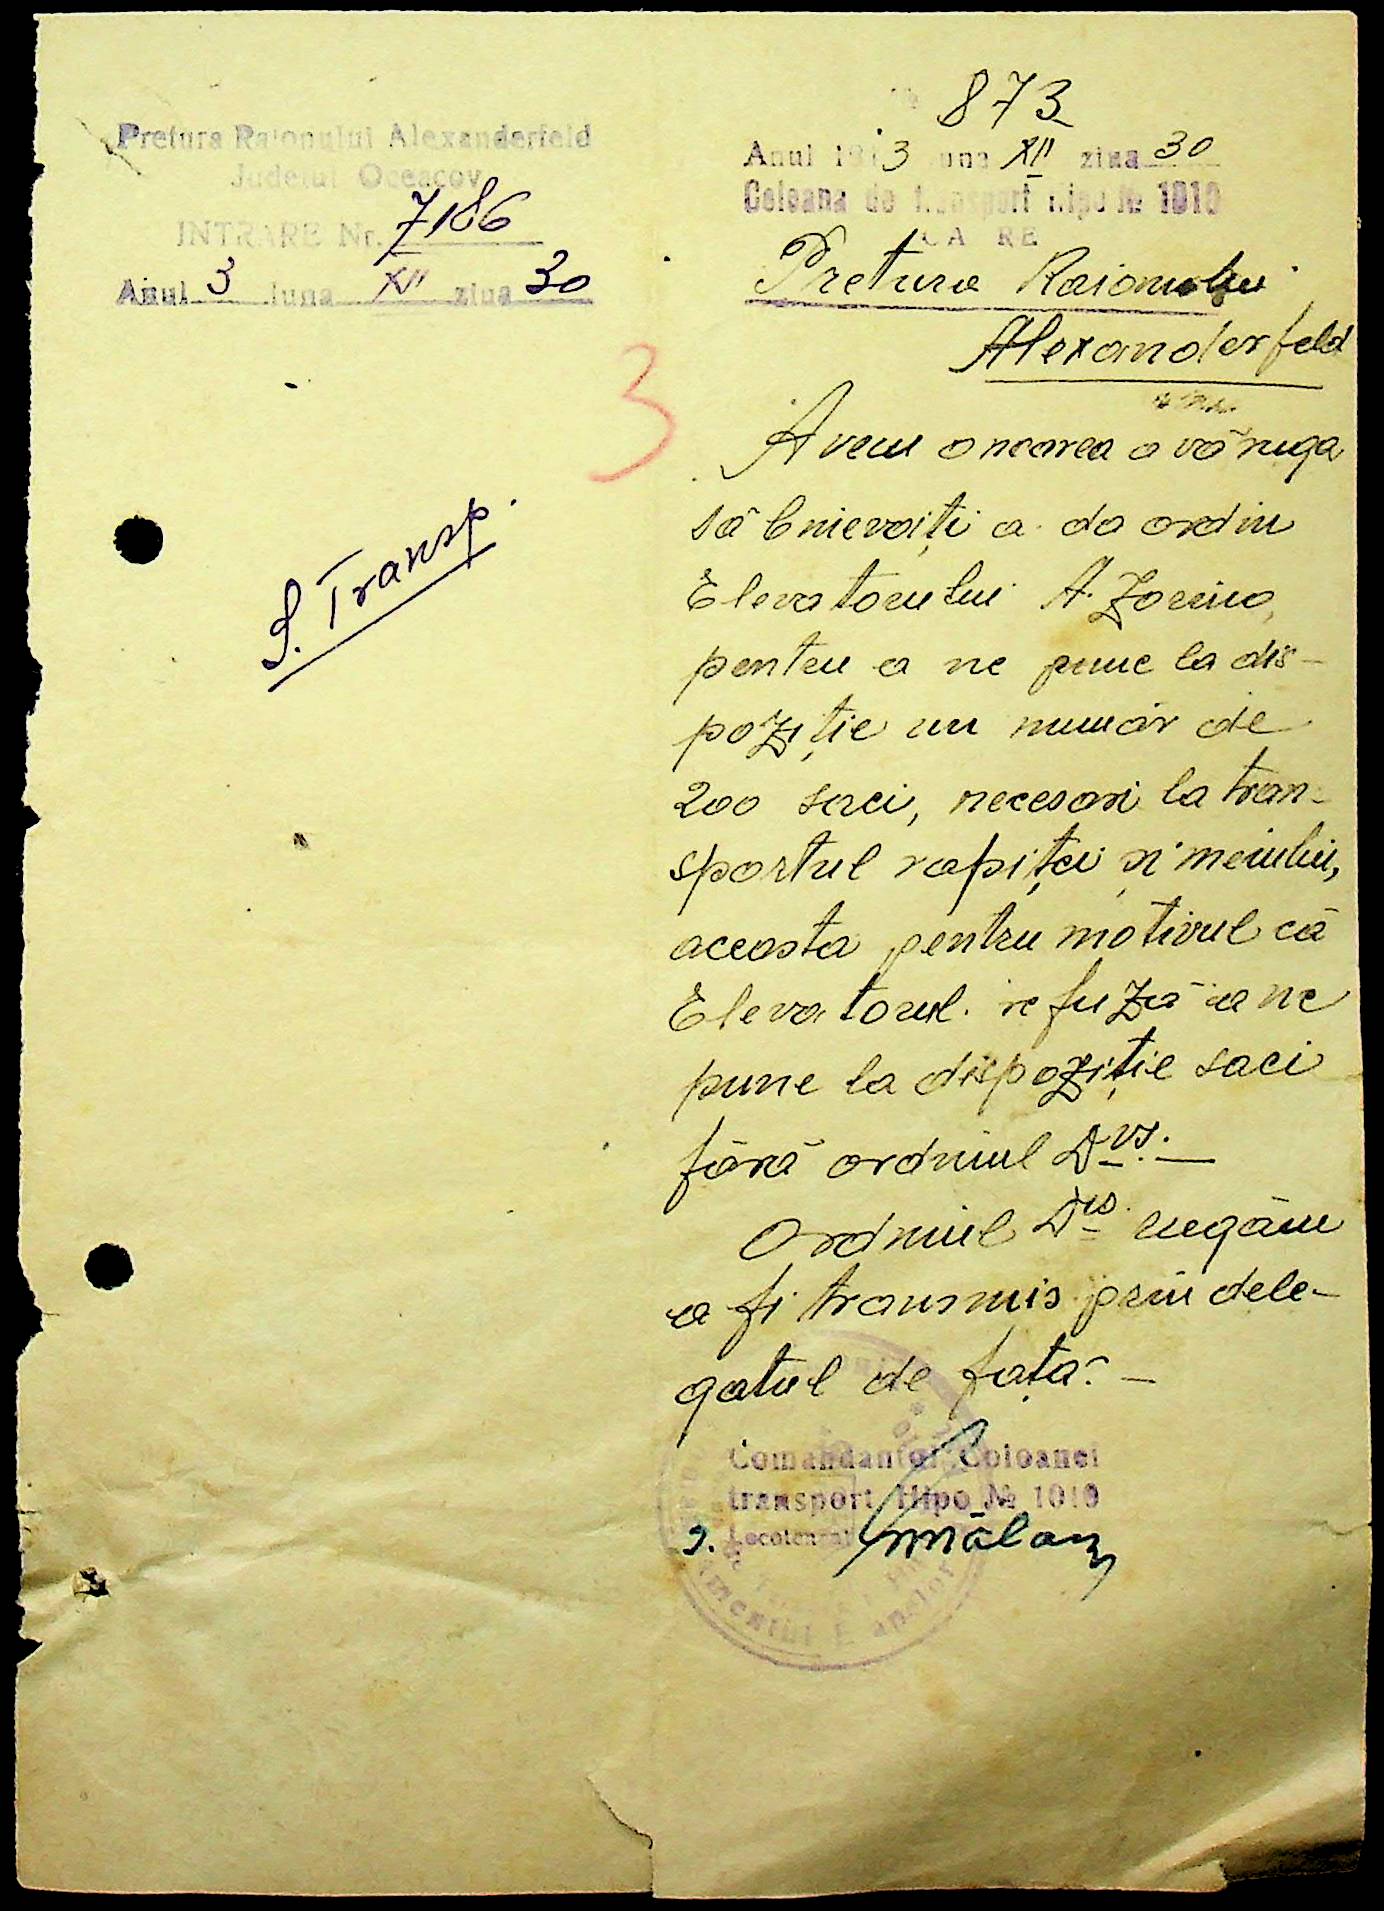 Pretura Raionului Alexanderfeld
Județul Oceacov
INTRARE Nr. 7186
Anul 3 luna XII ziua 30
873
Anul 1943 luna XII ziua 30
Coloana de transport hipo № 1010
CATRE
Pretura Raionului
Alexanderfeld
Avem onoarea a vă ruga
să binevoiți a da ordin
Elevatorului A.
pentru a ne pune la dis-
poziție un număr de
200 saci, necesari la tran-
sportul rapiței și meiului,
aceasta pentru motivul că
Elevatorul refuză a ne
pune la dispoziție saci
fără ordinul Dvs. —
Ordinul Dvs rugăm
a fi transmis prin dele-
gatul de față. —
Comandantul Coloanei
transport Hipo № 1010
Locotenent
S. Transp.
3